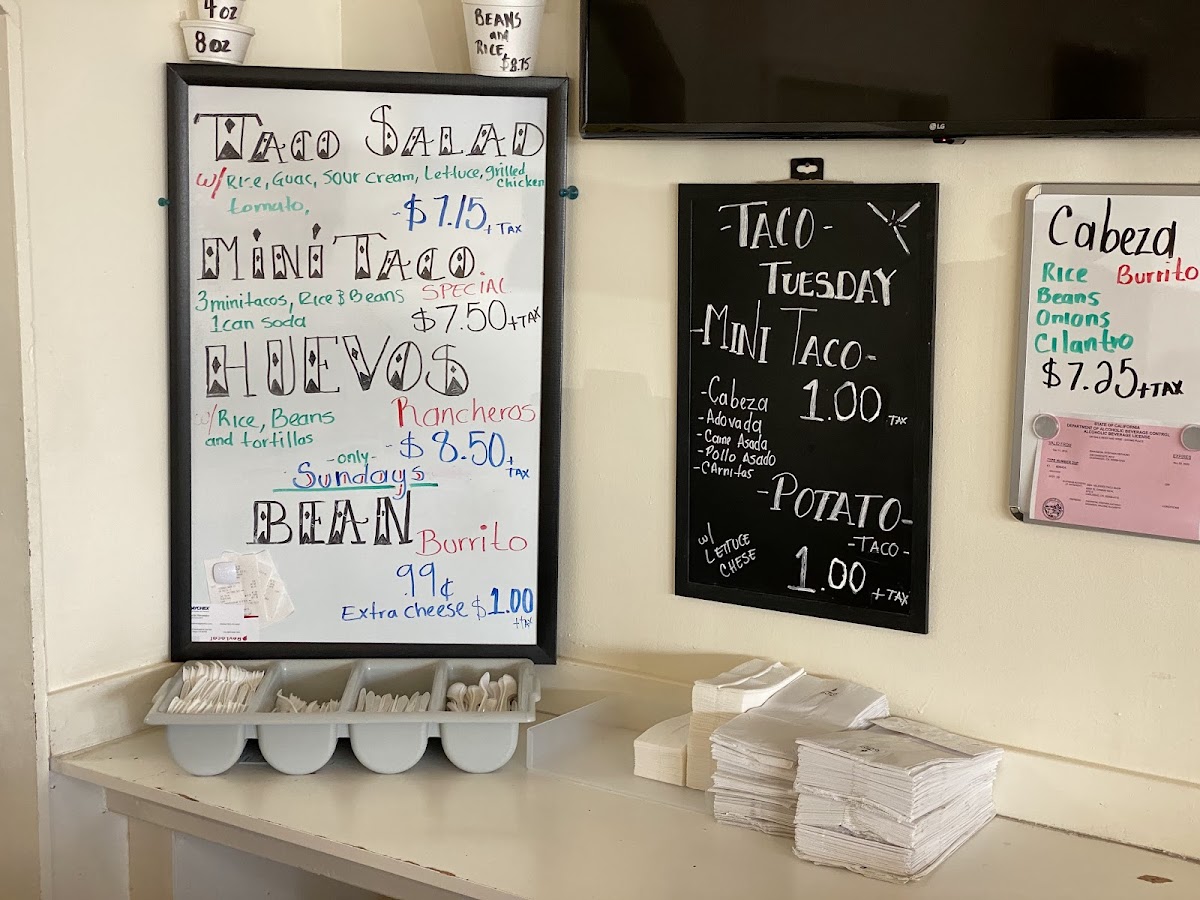 4 oz
8 oz
BEANS
and
RICE
$8.75
TACO SALAD
w/ Rice, Guac, Sour cream, Lettuce, grilled
chicken
tomato,
- $7.15 + TAX
MiNi TACO
SPECIAL
3 mini tacos, Rice & Beans
1 can soda
$7.50 + TAX
HUEVOS
w/ Rice, Beans
and tortillas
Rancheros
- $8.50 + TAX
- only -
Sundays
BEAN
Burrito
.99¢
Extra cheese $1.00
+ TAX
LG
- TACO -
TUESDAY
- MINI TACO -
1.00 TAX
- Cabeza
- Adovada
- Carne Asada
- Pollo Asado
- CArnitas
- POTATO -
- TACO -
w/
LETTUCE
CHESE
1.00 + TAX
Cabeza
Rice Burrito
Beans
Onions
Cilantro
$7.25 + TAX
STATE OF CALIFORNIA
DEPARTMENT OF ALCOHOLIC BEVERAGE CONTROL
ALCOHOLIC BEVERAGE LICENSE